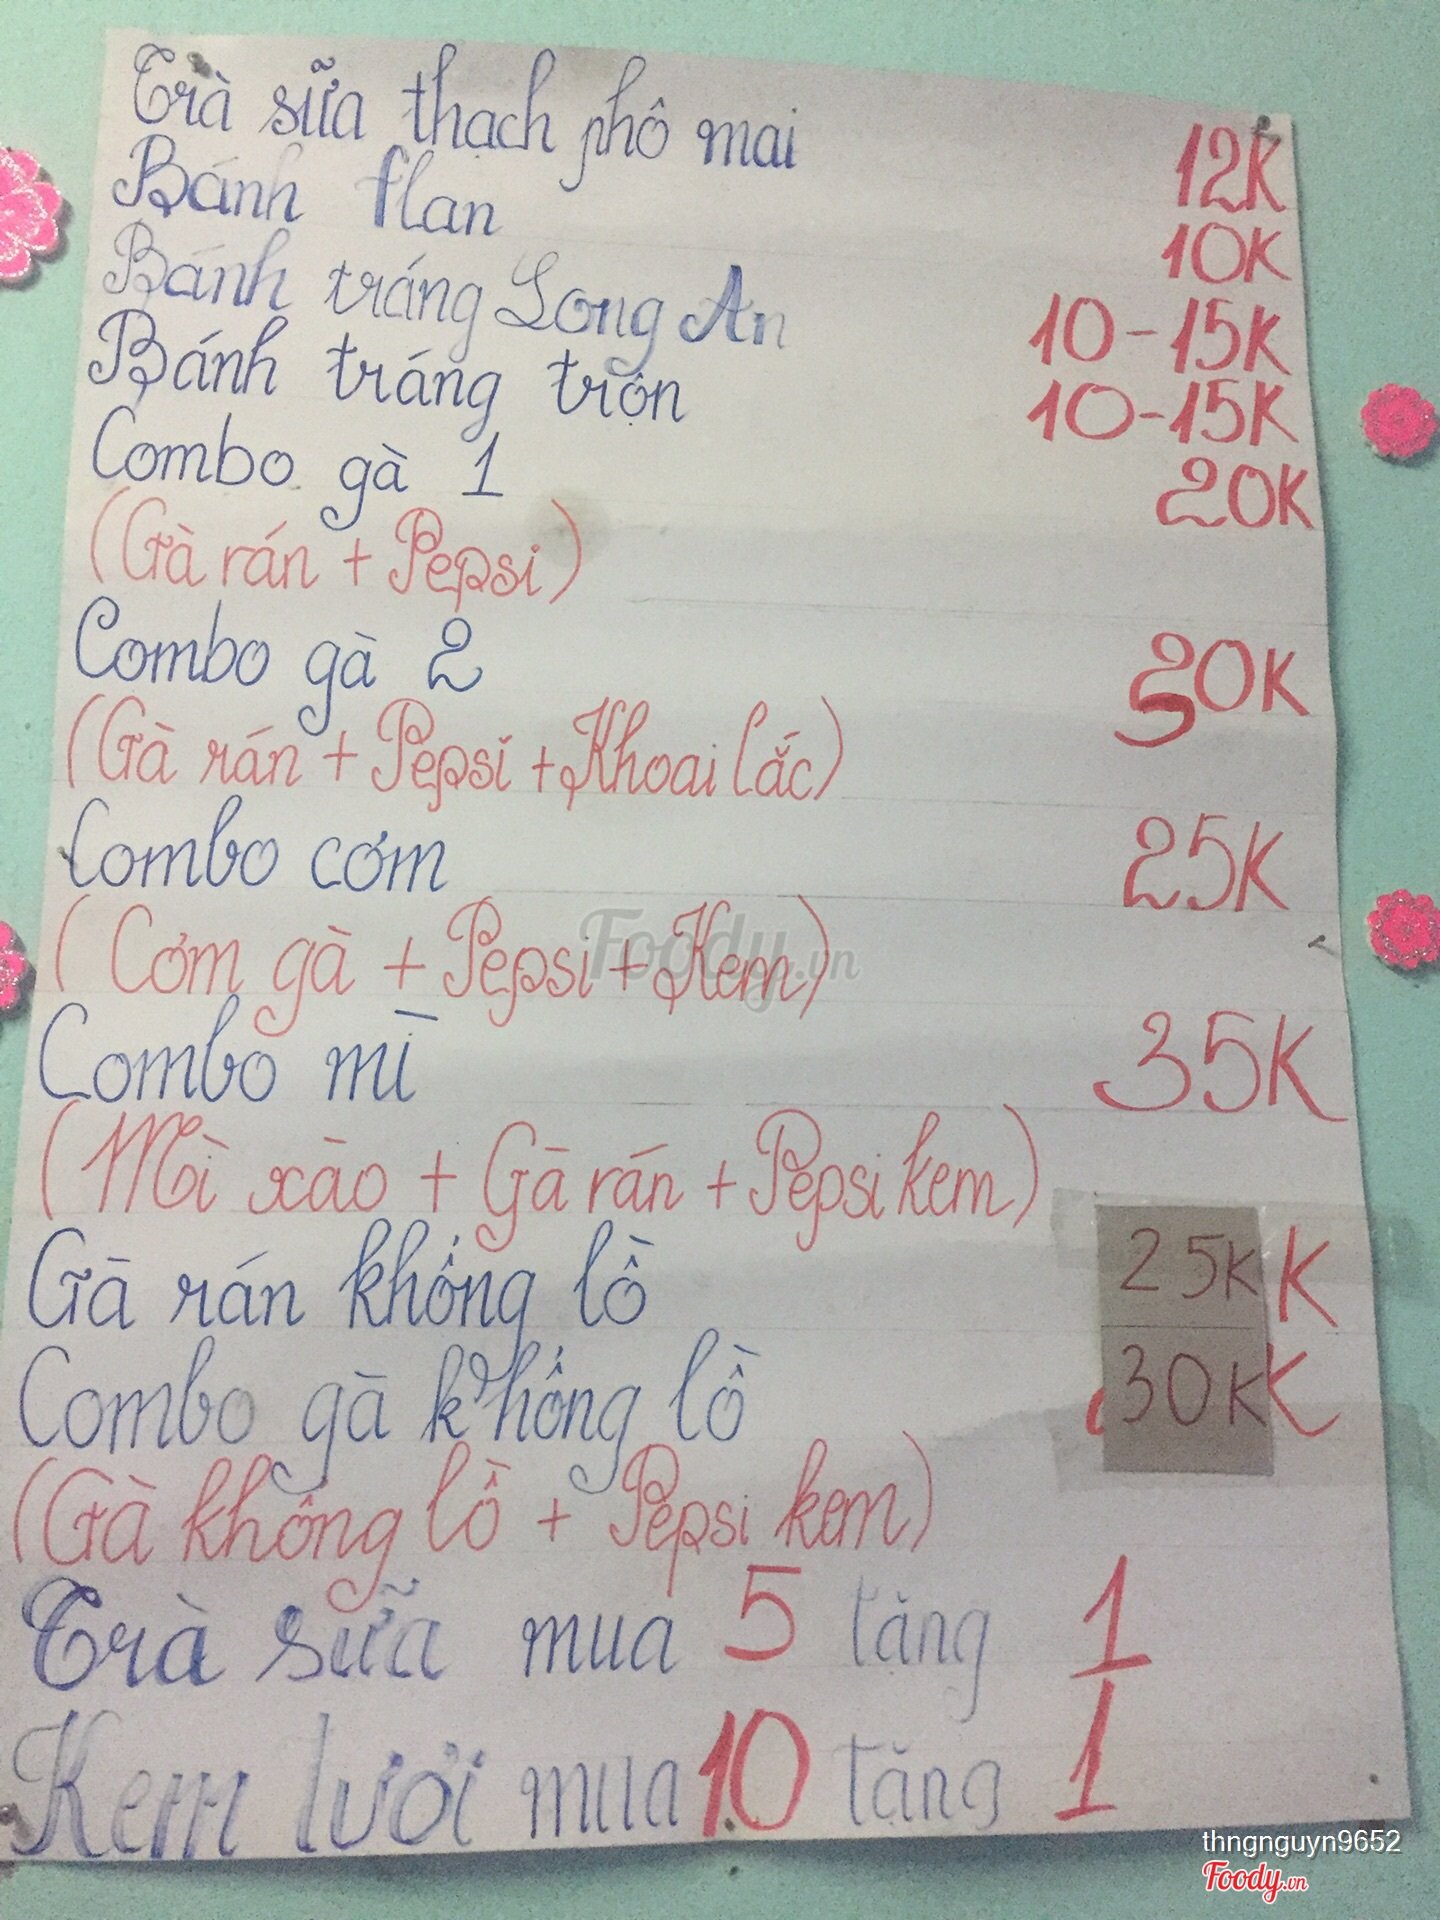 Trà sữa thạch phô mai 12K
Bánh flan 10K
Bánh tráng Long An 10-15K
Bánh tráng trộn 10-15K
Combo gà 1 20K
(Gà rán + Pepsi)
Combo gà 2 30K
(Gà rán + Pepsi + Khoai lắc)
Combo cơm 25K
(Cơm gà + Pepsi + Kem)
Foody.vn
Combo mì 35K
(Mì xào + Gà rán + Pepsi kem)
Gà rán khổng lồ 25K K
Combo gà khổng lồ 30K K
(Gà khổng lồ + Pepsi kem)
Trà sữa mua 5 tặng 1
Kem lươi mua 10 tặng 1
thngnguyn9652
Foody.vn